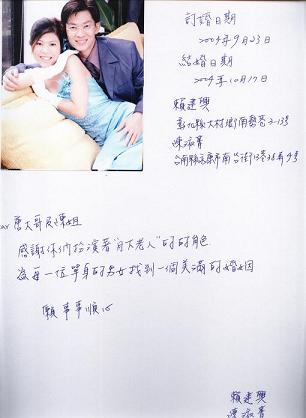 訂婚日期
2004年9月23日
結婚日期
2004年10月17日
賴建興
彰化縣大村鄉南勢巷2-13号
陳淑菁
台南縣永康市南台街13巷38弄4号
唐大哥及陳姐
感謝你們扮演著"月下老人"的的角色
為每一位單身的男女找到一個美滿的婚姻
願事事順心
賴建興
陳淑菁